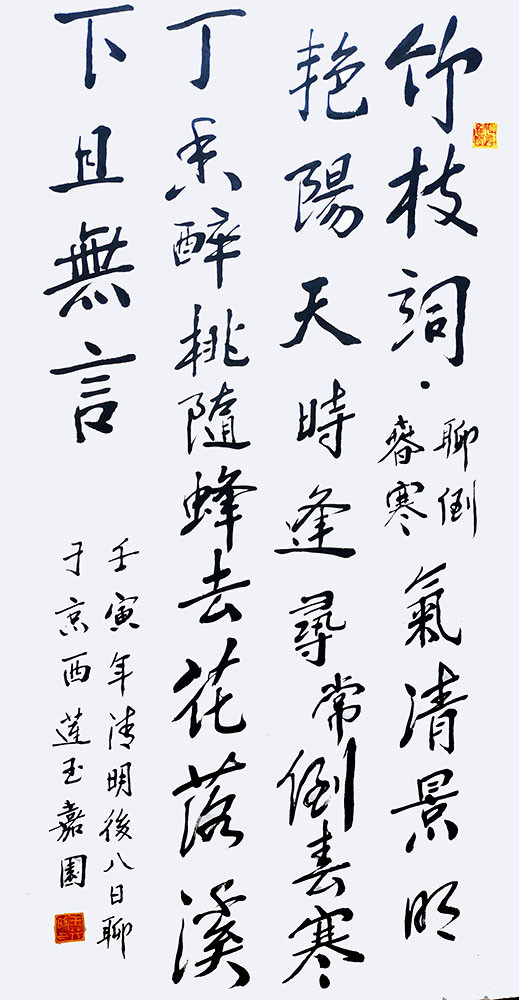 竹枝詞·聊倒春寒氣清景明
艳陽天時逢尋常倒春寒
丁香醉桃隨蜂去花落溪
下且無言
壬寅年清明後八日聊
于京西蓮玉嘉園